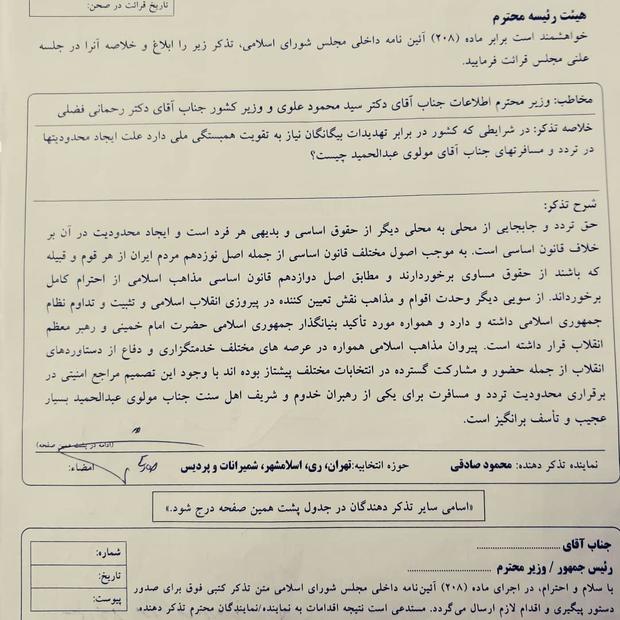 تاریخ قرائت در صحن:
هیئت رئیسه محترم
خواهشمند است برابر ماده (۲۰۸) آئین نامه داخلی مجلس شورای اسلامی، تذکر زیر را ابلاغ و خلاصه آنرا در جلسه
علنی مجلس قرائت فرمایید.
مخاطب: وزیر محترم اطلاعات جناب آقای دکتر سید محمود علوی و وزیر کشور جناب آقای دکتر رحمانی فضلی
خلاصه تذکر: در شرایطی که کشور در برابر تهدیدات بیگانگان نیاز به تقویت همبستگی ملی دارد علت ایجاد محدودیتها
در تردد و مسافرتهای جناب آقای مولوی عبدالحمید چیست؟
شرح تذکر:
حق تردد و جابجایی از محلی به محلی دیگر از حقوق اساسی و بدیهی هر فرد است و ایجاد محدودیت در آن بر
خلاف قانون اساسی است. به موجب اصول مختلف قانون اساسی از جمله اصل نوزدهم مردم ایران از هر قوم و قبیله
که باشند از حقوق مساوی برخوردارند و مطابق اصل دوازدهم قانون اساسی مذاهب اسلامی از احترام کامل
برخورداند. از سویی دیگر وحدت اقوام و مذاهب نقش تعیین کننده در پیروزی انقلاب اسلامی و تثبیت و تداوم نظام
جمهوری اسلامی داشته و دارد و همواره مورد تأکید بنیانگذار جمهوری اسلامی حضرت امام خمینی و رهبر معظم
انقلاب قرار داشته است. پیروان مذاهب اسلامی همواره در عرصه های مختلف خدمتگزاری و دفاع از دستاوردهای
انقلاب از جمله حضور و مشارکت گسترده در انتخابات مختلف پیشتاز بوده اند با وجود این تصمیم مراجع امنیتی در
برقراری محدودیت تردد و مسافرت برای یکی از رهبران خدوم و شریف اهل سنت جناب مولوی عبدالحمید بسیار
عجیب و تأسف برانگیز است.
(ادامه در پشت همین صفحه)
نماینده تذکر دهنده: محمود صادقی حوزه انتخابیه:تهران، ری، اسلامشهر، شمیرانات و پردیس امضاء:
«اسامی سایر تذکر دهندگان در جدول پشت همین صفحه درج شود.»
جناب آقای ..............................
رئیس جمهور / وزیر محترم ..............................
با سلام و احترام، در اجرای ماده (۲۰۸) آئین‌نامه داخلی مجلس شورای اسلامی متن تذکر کتبی فوق برای صدور
دستور پیگیری و اقدام لازم ارسال می‌گردد. مستدعی است نتیجه اقدامات به نماینده/نمایندگان محترم تذکر دهنده،
شماره:
تاریخ:
پیوست: